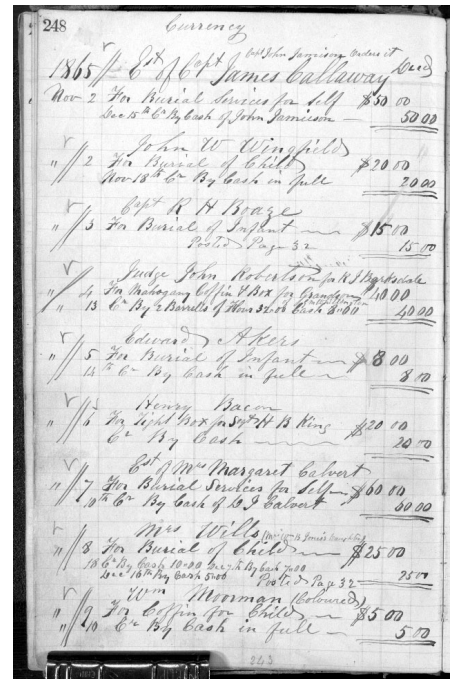 248
Currency
Capt John Jamison Orders it
1865 Est of Capt James Callaway Decd
Nov 2 For Burial Services for Self $50 00
Dec 15th Cr By Cash of John Jamison 50 00
John W Wingfield
" 2 For Burial of Child $20 00
Nov 18th Cr By Cash in full 20 00
Capt R H Boaze
" 3 For Burial of Infant $15 00
Posted Page 32 15 00
Judge John Robertson for R J Barksdale
" 4 For Mahogany Coffin & Box for Grandson 40 00
13 Cr By 2 Barrels of Flour 32.00 Cash 8.00 40 00
Edward Akers
" 5 For Burial of Infant $8 00
14th Cr By Cash in full 8 00
Henry Bacon
" 6 For Tight Box for Sgt H B King $20 00
Cr By Cash 20 00
Est of Mrs Margaret Calvert
" 7 For Burial Services for Self $60 00
10th Cr By Cash of L J Calvert 60 00
Mrs Wills
" 8 For Burial of Child $25 00
18 Cr By Cash 10.00 Dec 7th By Cash 7.00
Dec 16th By Cash 5.00 Posted Page 32 25 00
Wm Moorman (Coloured)
" 9 For Coffin for Child $5 00
" 10 Cr By Cash in full 5 00
343